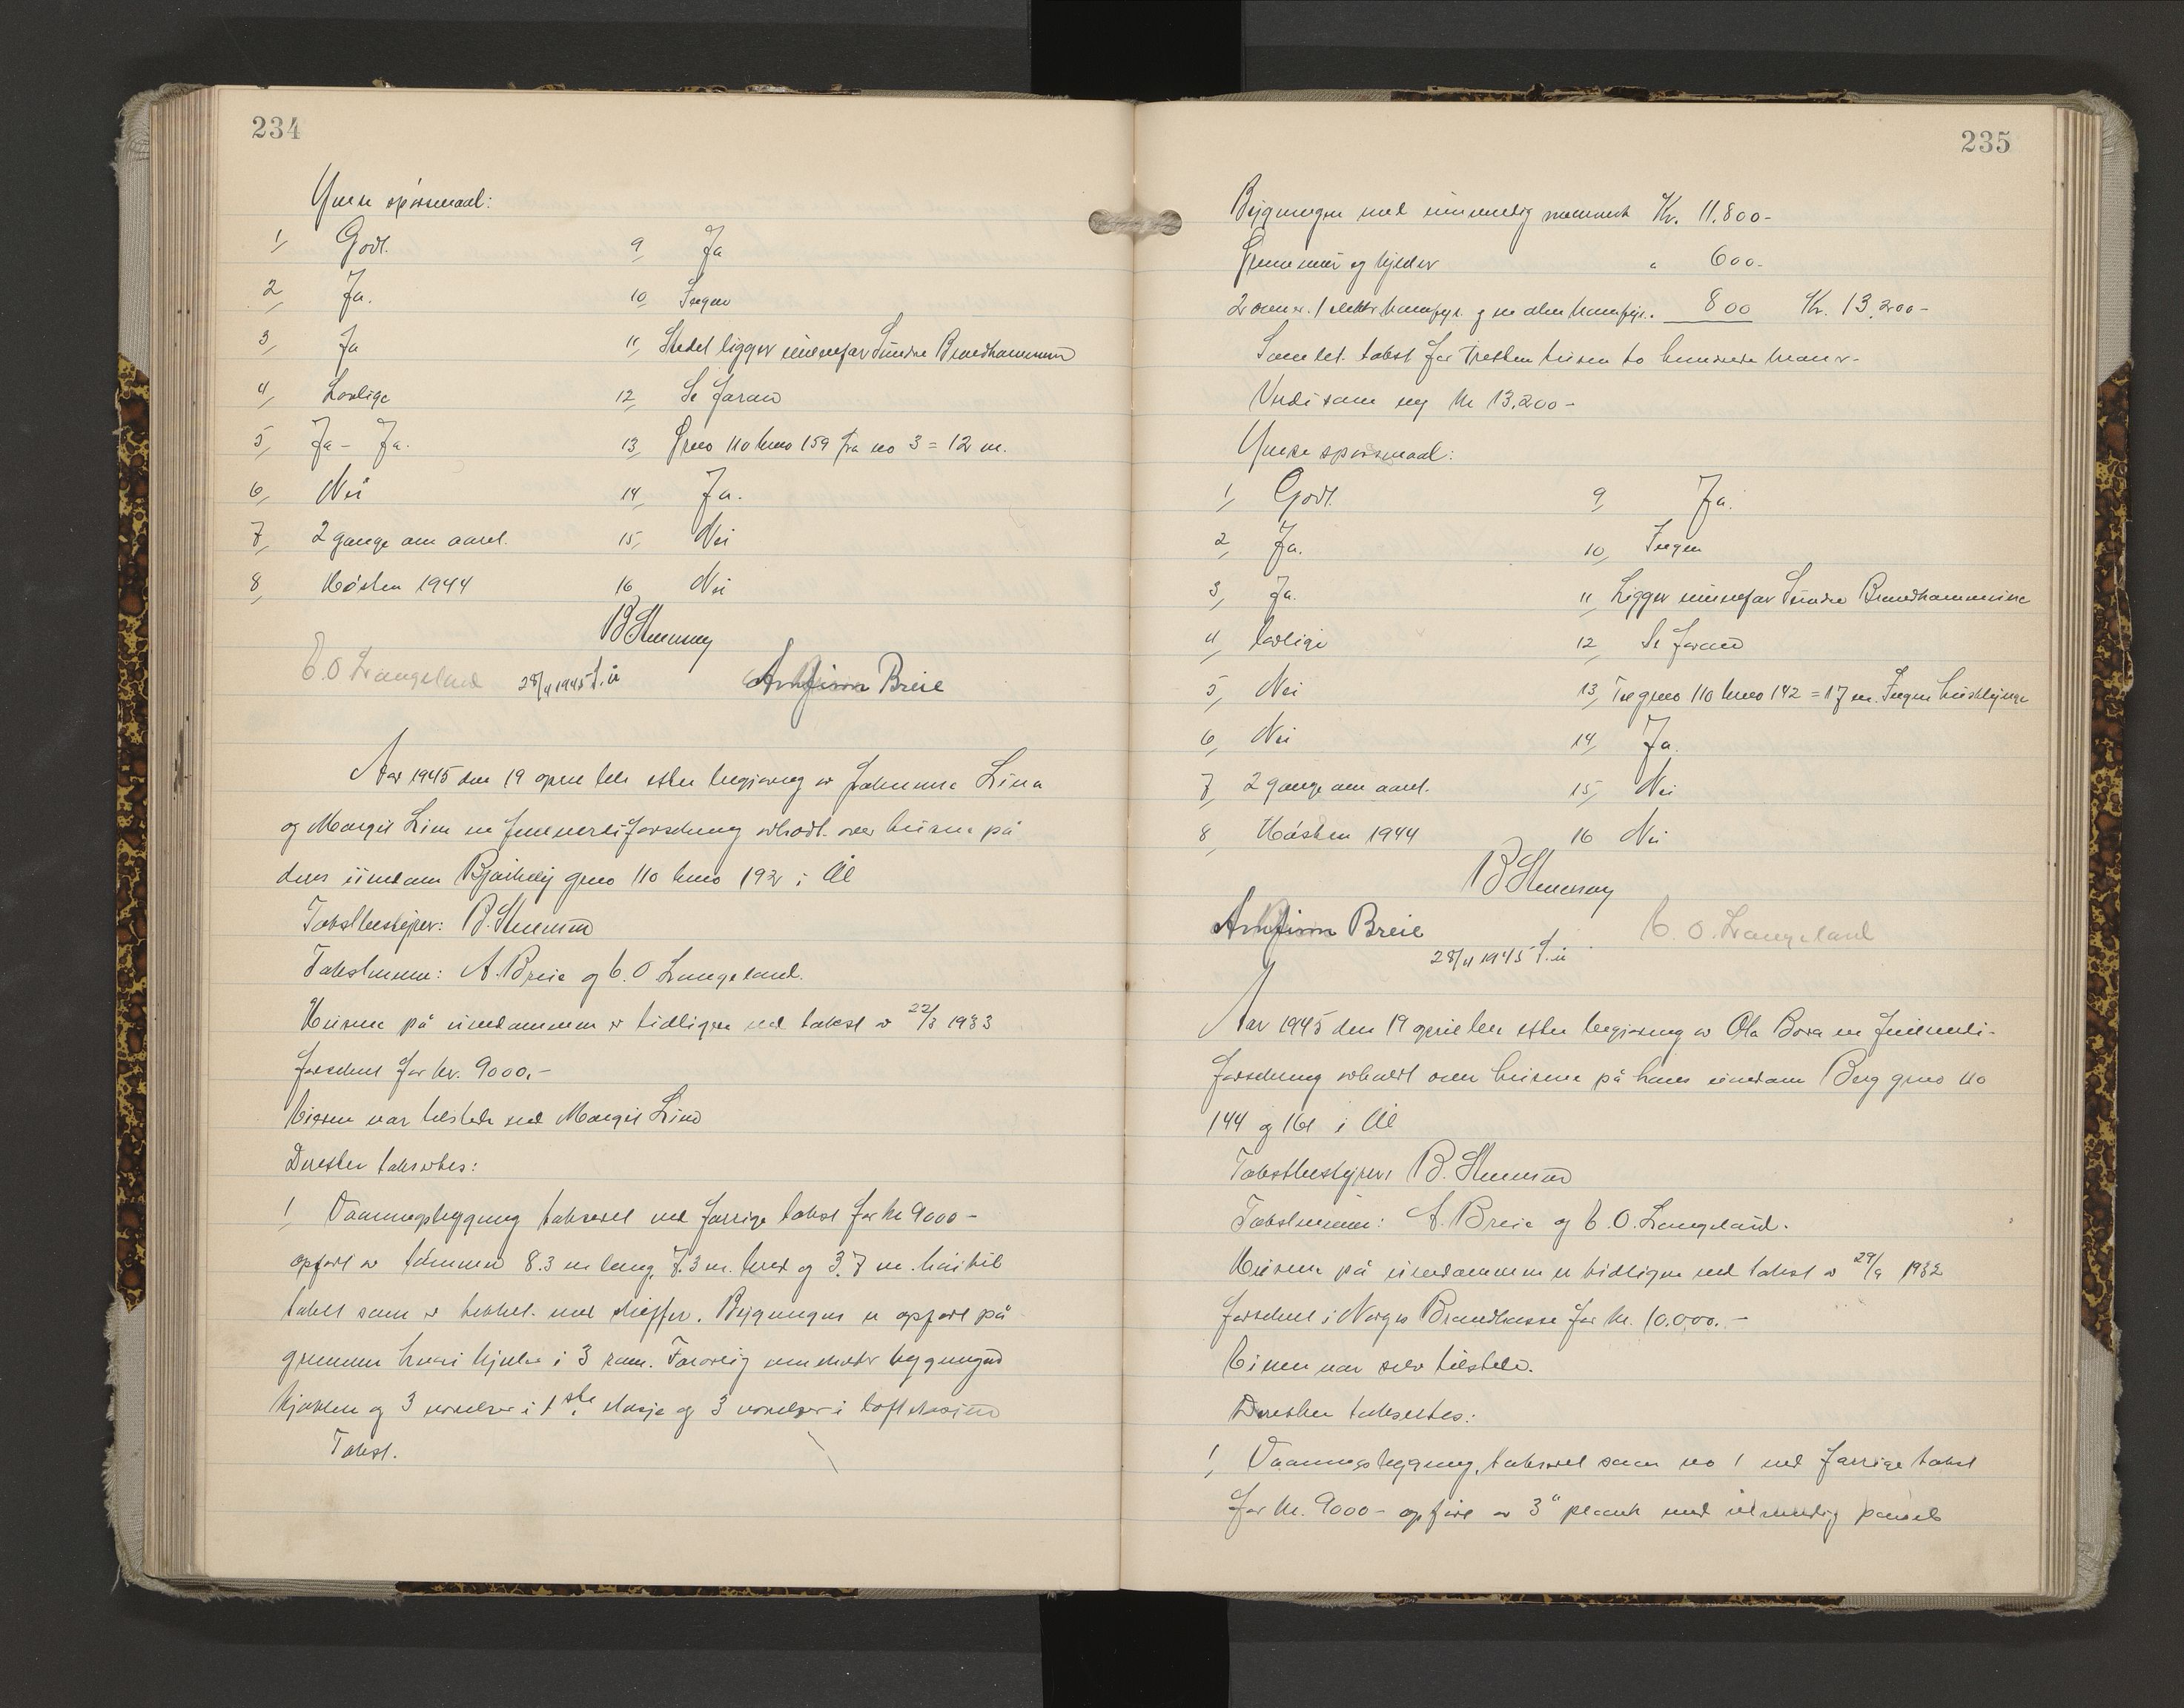 234
Ymse spørsmaal:
1/ Godt. 9/ Ja
2/ Ja. 10/ Ingen
3/ Ja 11/ Stedet ligger innenfor Sundre Brandkommune
4/ Lovlige 12/ Se foran
5/ Ja - Ja. 13/ Gno 110 bno 159 fra no 3 = 12 m.
6/ Nei 14/ Ja.
7/ 2 gange om aaret. 15/ Nei
8/ Høsten 1944 16/ Nei
E. O. Langeland 28/4 1945 T.u Arnfinn Breie
Aar 1945 den 19 april ble efter begjæring av Johanna Lien
og Margit Lien en branntaksforretning avholdt over husene på
deres eiendom gno 110 bno 192 i Ål
Takstbestyrer: B.
Takstmenn: A. Breie og E. O Langeland.
Husene på eiendommen er tidligere ved takst av 22/3 1933
forsikret for kr. 9000.-
Eieren var tilstede ved Margit Lien
Derefter taksertes:
1/ Vaaningsbygning taksert ved forrige takst for kr 9000 -
opført av tømmer 8.3 m lang, 7.3 m. bred og 3.7 m. høi til
taket som er tekket med skiffer. Bygningen er opført på
grunnmur hvori kjeller i 3 rum. Forøvrig inneholder bygningen
kjøkken og 3 værelser i 1ste etasje og 3 værelser i loftetasjen
Takst.
235
Bygningen med innvendig murverk Kr. 11.800 -
Grunnmur og kjeller " 600 -
2 ovner. 1 elektr. komfyr og en alm komfyr. 800 Kr. 13.200 -
Samlet takst for Tretten tusen to hundrede kroner -
Verdi som ny kr 13.200 -
Ymse spørsmaal:
1/ Godt. 9/ Ja.
2/ Ja. 10/ Ingen
3/ Ja. 11/ Ligger innenfor Sundre Brandkommune
4/ Lovlige 12/ Se foran
5/ Nei 13/ Til gno 110 bno 142 = 17 m. Ingen
6/ Nei 14/ Ja.
7/ 2 gange om aaret. 15/ Nei
8/ Høsten 1944 16 Nei
Arnfinn Breie E. O. Langeland
28/4 1945 T.u
Aar 1945 den 19 april ble efter begjæring av Ola Bora en
forretning avholdt over husene på hans eiendom Berg gno 110
144 og 161 i Ål
Takstbestyrer: B.
Takstmenn: A. Breie og E. O. Langeland.
Husene på eiendommen er tidligere ved takst av 29/9 1932
forsikret i Norges Brandkasse for kr. 10.000. -
Eieren var selv tilstede.
Derefter taksertes:
1/ Vaaningsbygning, taksert som no 1 ved forrige takst
for kr. 9000 - opført av 3" plank med utvendig panel